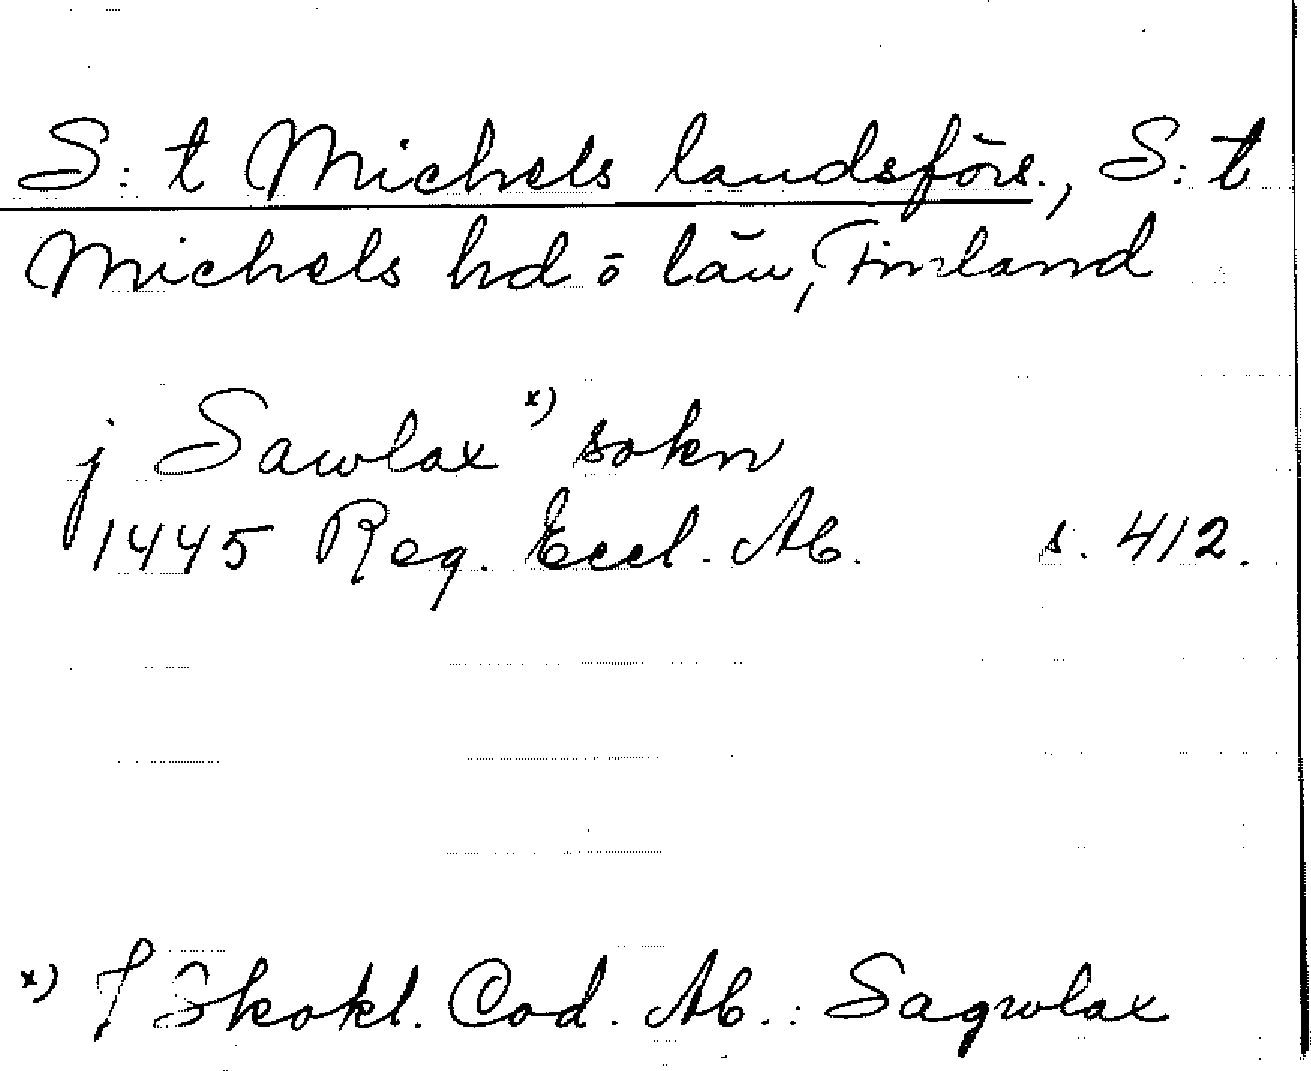 S:t Michels landsförs., S:t
Michels hd o län, Finland
j Sawlax x) sokn
1445 Reg. Eccl. Ab. s. 412.
x) I Skokl. Cod. Ab.: Sagwlax